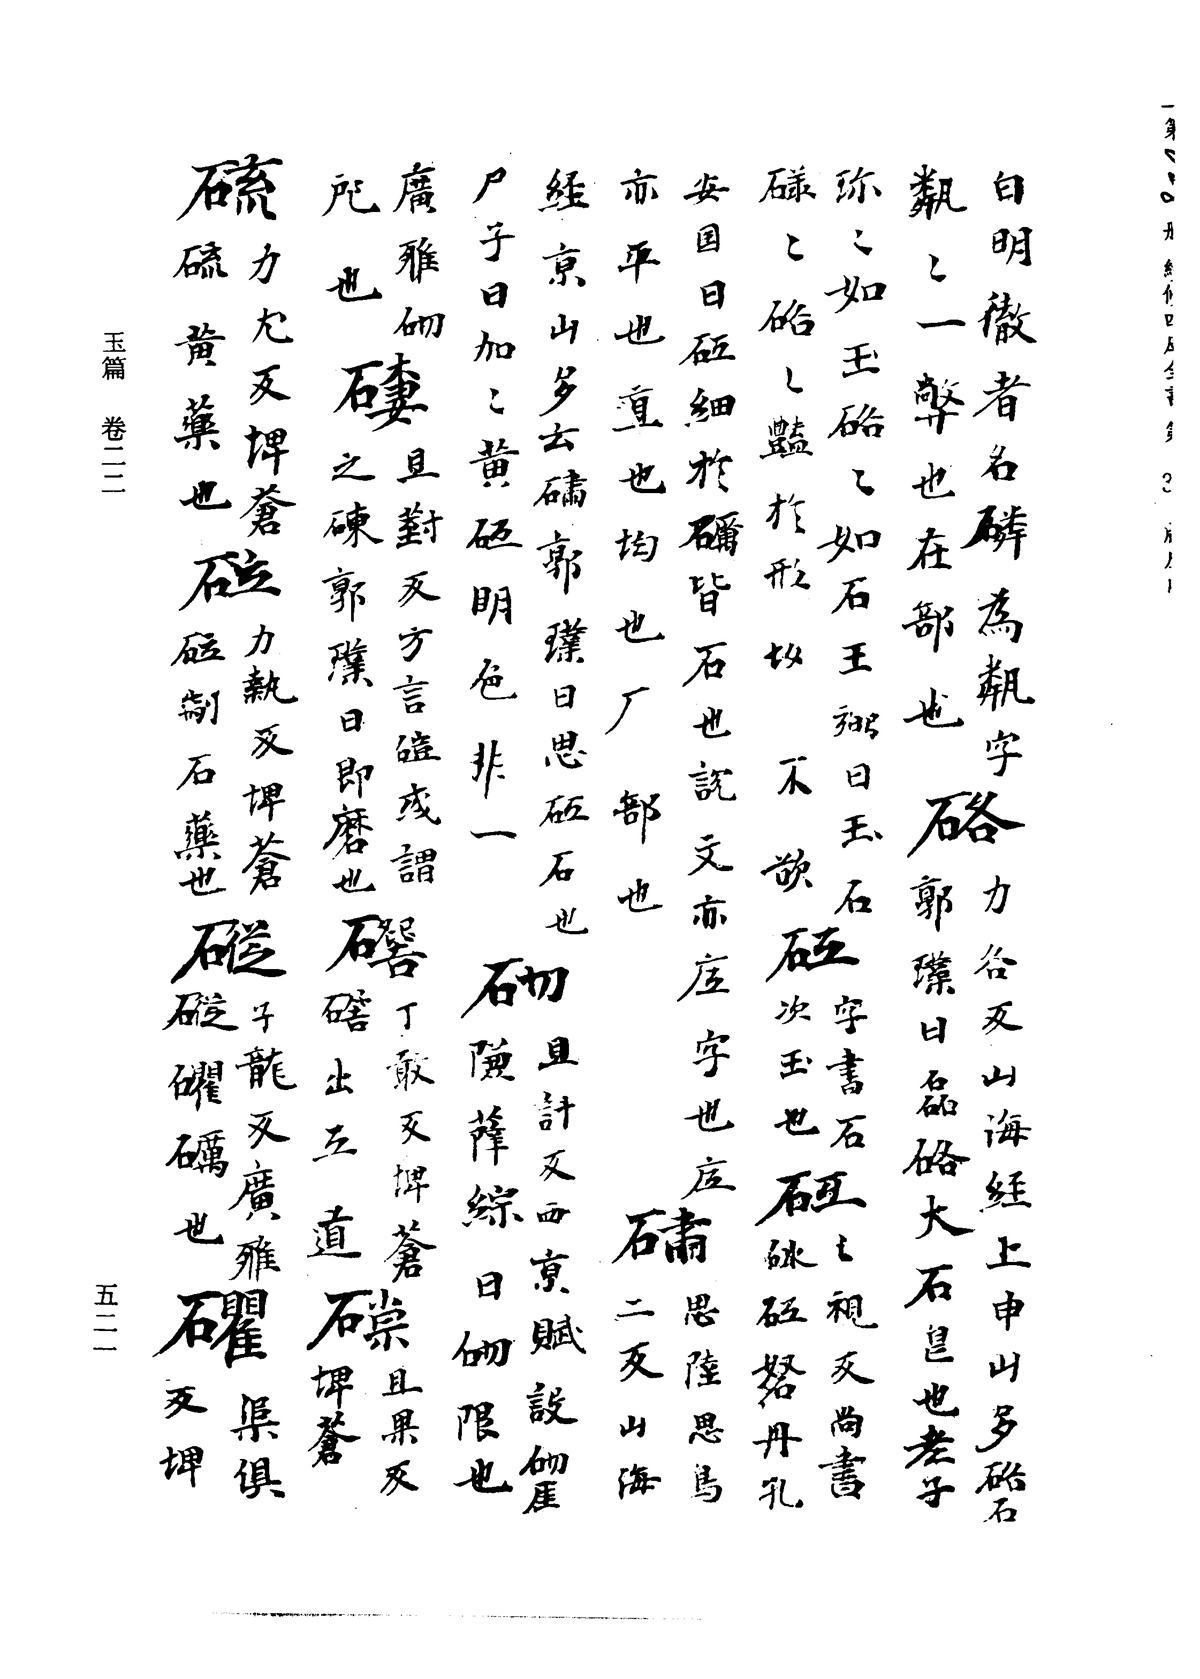 白明徹者名磷為粼字硌力各反山海經上申山多硌石
粼〻一弊也在部也郭璞曰磊硌大石皀也老子
珎〻如玉硌〻如石王弼曰玉石
碌〻硌〻豔於形故不欲砡字書石次玉也砥之視反尚書
砅砥砮丹孔
安国曰砥細於礪皆石也說文亦底字也底
亦平也直也均也厂部也䃤思陸思鳥二反山海
經京山多玄䃤郭璞曰思砥石也
尸子曰加〻黃砥明色非一砌且計反西京賦設砌厓
隒薛綜曰砌限也
廣雅砌
戺也䃀且對反方言磑或謂
之㻋郭璞曰即磨也䃭丁敢反埤蒼
出道䃬且果反
埤蒼
硫力尤反埤蒼
硫黃藥也砬力執反埤蒼
砬制石藥也磫子龍反廣雅
磫䂂礪也䂂渠俱
反埤
玉篇 卷二二
五二一